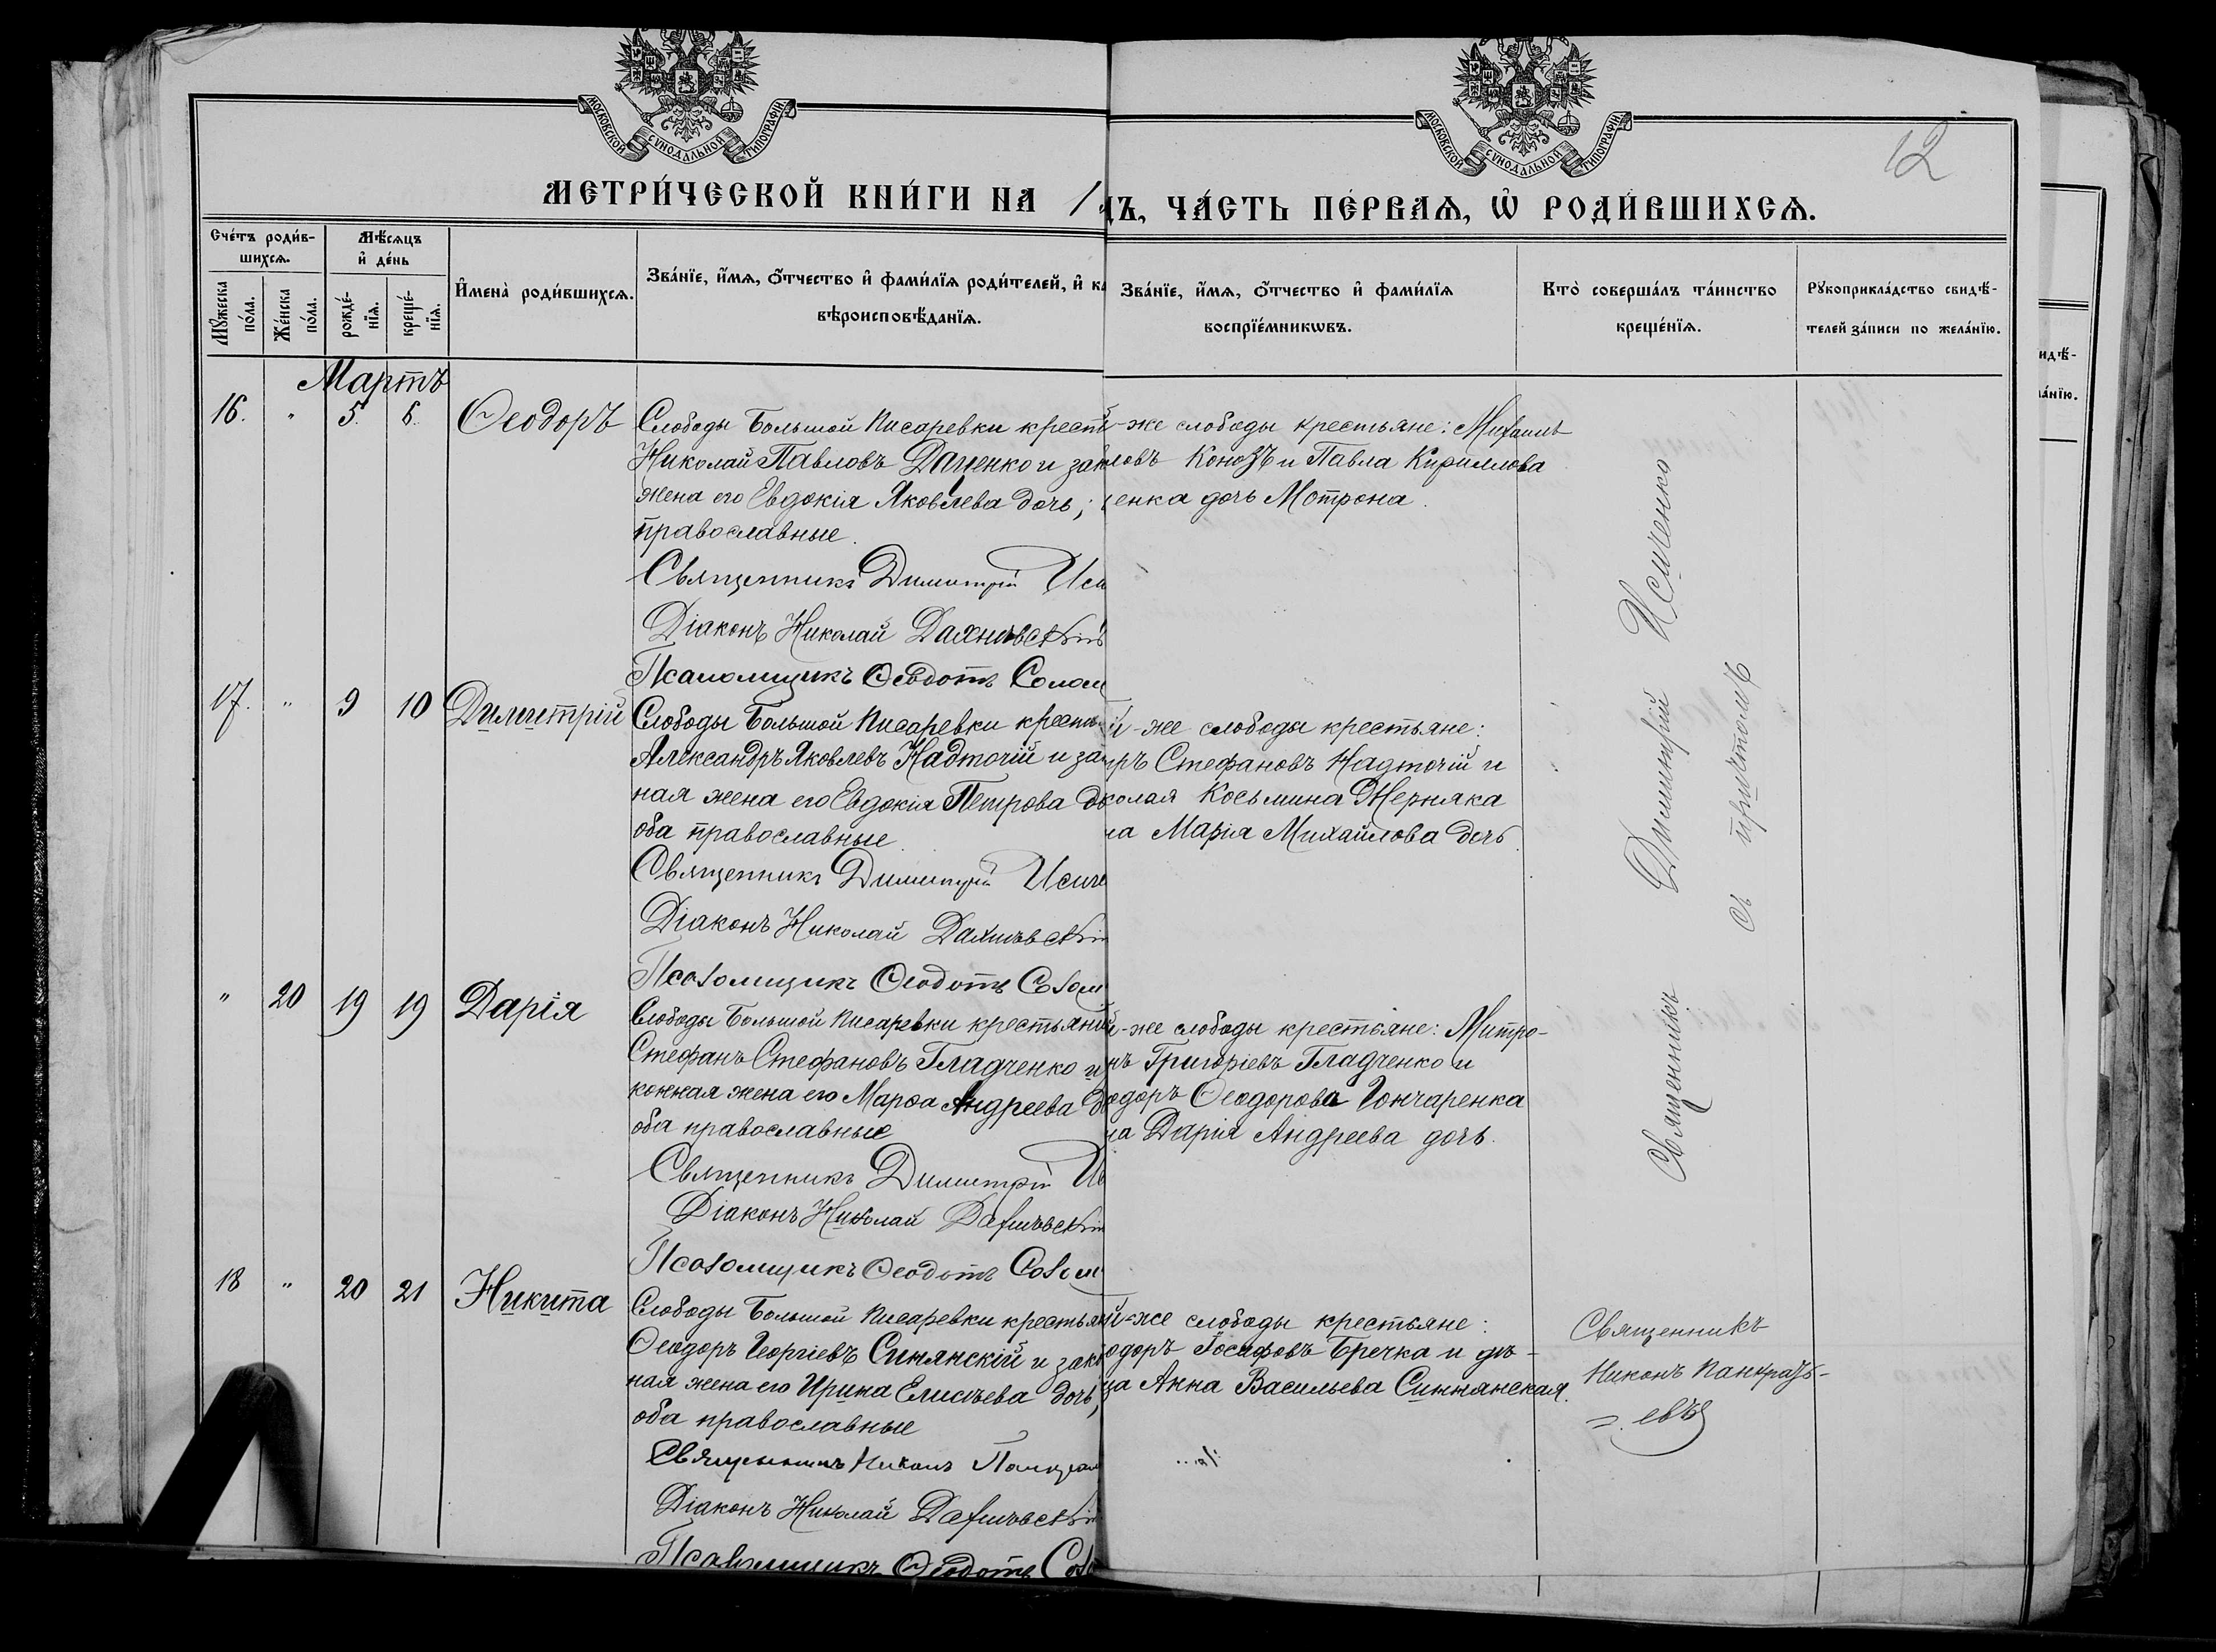 МОСКОВСКОЙ СУНОДАЛЬНОЙ ТИПОГРАФІИ
МОСКОВСКОЙ СУНОДАЛЬНОЙ ТИПОГРАФІИ
12
МЕТРИ́ЧЕСКОЙ КНИ́ГИ НА 1
ДЪ, ЧА́СТЬ ПЕ́РВАЯ, Ѽ РОДИ́ВШИХСЯ.
Сче́тъ роди́в-
шихся.
Мѣ́сяцъ
и҆ де́нь
Мꙋ́жеска
по́ла.
Же́нска
по́ла.
рожде́-
нїя.
креще́-
нїя.
И҆мена̀ роди́вшихся.
Зва́нїе, и҆́мя, ѻ҆́тчество и҆ фами́лїя роди́телей, и҆ ка
вѣроисповѣ́данїя.
Зва́нїе, и҆́мя, ѻ҆́тчество и҆ фами́лїя
воспрїе́мникѡвъ.
Кто̀ соверша́лъ та́инство
креще́нїя.
Рꙋкоприкла́дство свидѣ́-
телей за́писи по жела́нїю.
идѣ́-
ла́нїю.
Мартъ
16. " 5. 6. Ѳеодоръ
Слободы Большой Писаревки кресть
Николай Павловъ Даценко и зак
жена его Евдокія Яковлева дочь;
православные.
Священникъ Димитрій Иси
Діаконъ Николай Дахнѣвскій
Псаломщикъ Ѳеодотъ Солом
-же слободы крестьяне: Михаилъ
ловъ Конозъ и Павла Кириллова
енка дочь Мотрона.
17. " 9 10 Димитрій
Слободы Большой Писаревки кресть
Александръ Яковлевъ Надточій и за
ная жена его Евдокія Петрова до
оба православные.
Священникъ Димитрій Исиче
Діаконъ Николай Дахнѣвскій
Псаломщикъ Ѳеодотъ Солом
й-же слободы крестьяне:
иръ Стефановъ Надточій и
колая Косьмина Жерняка
на Марія Михайлова дочь.
" 20 19 19 Дарія
Слободы Большой Писаревки крестьяни
Стефанъ Стефановъ Гладченко и
конная жена его Марѳа Андреева до
оба православные
Священникъ Димитрій Ис
Діаконъ Николай Дахнѣвскій
Псаломщикъ Ѳеодотъ Солом
й-же слободы крестьяне: Митро-
нъ Григоріевъ Гладченко и
одоръ Ѳеодорова Гончаренка
на Дарія Андреева дочь.
Священникъ Димитрій Исиченко
съ причтомъ
18 " 20 21 Никита
Слободы Большой Писаревки крестьян
Ѳеодоръ Георгіевъ Синянскій и зако
ная жена его Ирина Елисѣева дочь,
оба православные
Священникъ Никонъ Панкрат
Діаконъ Николай Дахнѣвскій
Псаломщикъ Ѳеодотъ Сол
й-же слободы крестьяне:
одоръ Іосифовъ Бречка и дѣ-
ца Анна Васильева Синнянская.
Священникъ
Никонъ Панкратъ-
евъ